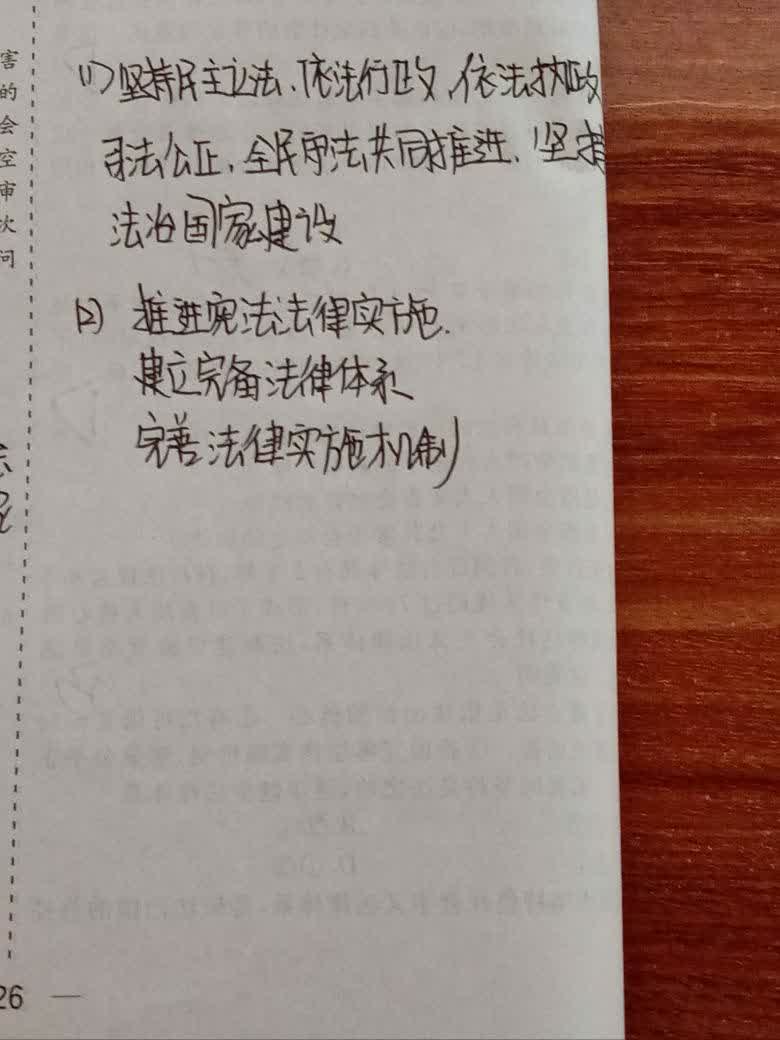 害
的
会
空
审
次
问
(1)坚持民主立法、依法行政、依法执政
司法公正、全民守法共同推进、坚持
法治国家建设
(2) 推进宪法法律实施.
建立完备法律体系
完善法律实施机制
26 —